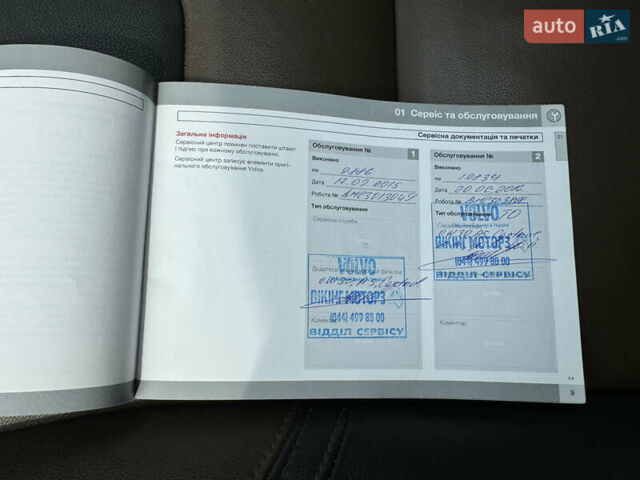 auto RIA.com
01 Сервіс та обслуговування
Сервісна документація та печатки
01
Загальна інформація
Сервісний центр повинен поставити штамп
і підпис при кожному обслуговуванні.
Сервісний центр записує елементи оригі-
нального обслуговування Volvo.
Обслуговування № 1
Виконано
км 9786
Дата 17.09.2015
Робота №
Тип обслуговування
Сервісна служба
VOLVO
0W30 A5 Castrol
ВІКІНГ МОТОРЗ
(044) 499 88 00
ВІДДІЛ СЕРВІСУ
Коментар
Обслуговування № 2
Виконано
км 19834
Дата
Робота №
Тип обслуговування ТО
VOLVO
0W30 A5 Castrol
ВІКІНГ МОТОРЗ
(044) 499 88 00
ВІДДІЛ СЕРВІСУ
Коментар
9